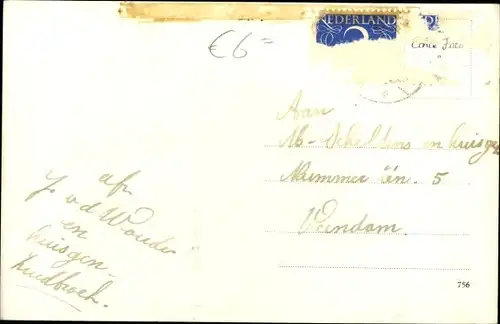 NEDERLAND
€6=
Aan
M. Scheltens en huisgen
Nummer één. 5
Veendam.
afz
J. v d Woude
en
huisgen.
Zuidbroek.
756